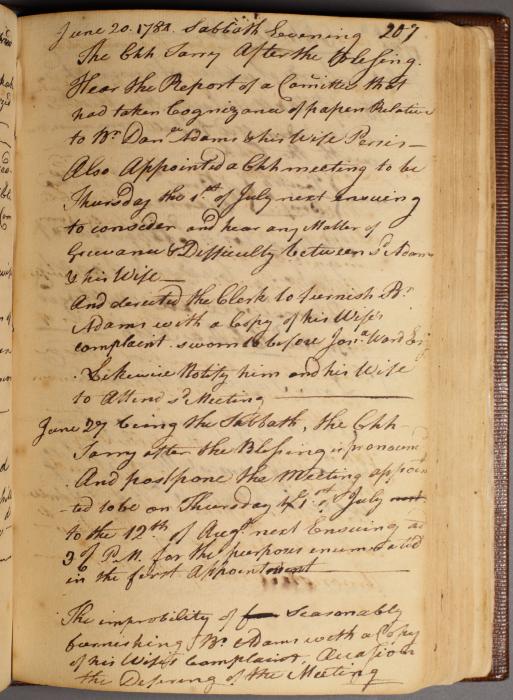 June 20. 1782. Sabbath Evening 207
The Chh Tarry After the Blessing.
Hear the Report of a Comittee that
had taken Cognizance of papers Relative
to Br. Danll Adams & his Wife Persis —
Also Appointed a Chh meeting to be
Thursday the 1st of July next ensuing
to consider and hear any Matter of
Grievance & Difficulty between sd Adams
& his Wife —
And derected the Clerk to furnish Br.
Adams with a Copy of his Wife's
complaint sworn to before Jona Ward Esq
Likewise Notify him and his Wife
to Attend sd Meeting —
June 27 being the Sabbath, the Chh
Tarry after the Blessing is pronounc'd
And postpone the Meeting appoin
-ted to be on Thursday ye 1st of July next
to the 12th of Augt next Ensuing at
3 of P.M. for the purposes enumerated
in the first Appointment —
The improbility of Seasonably
furnishing Br Adams with a Copy
of his Wife's Complaint, Occasion
the Defering of the Meeting